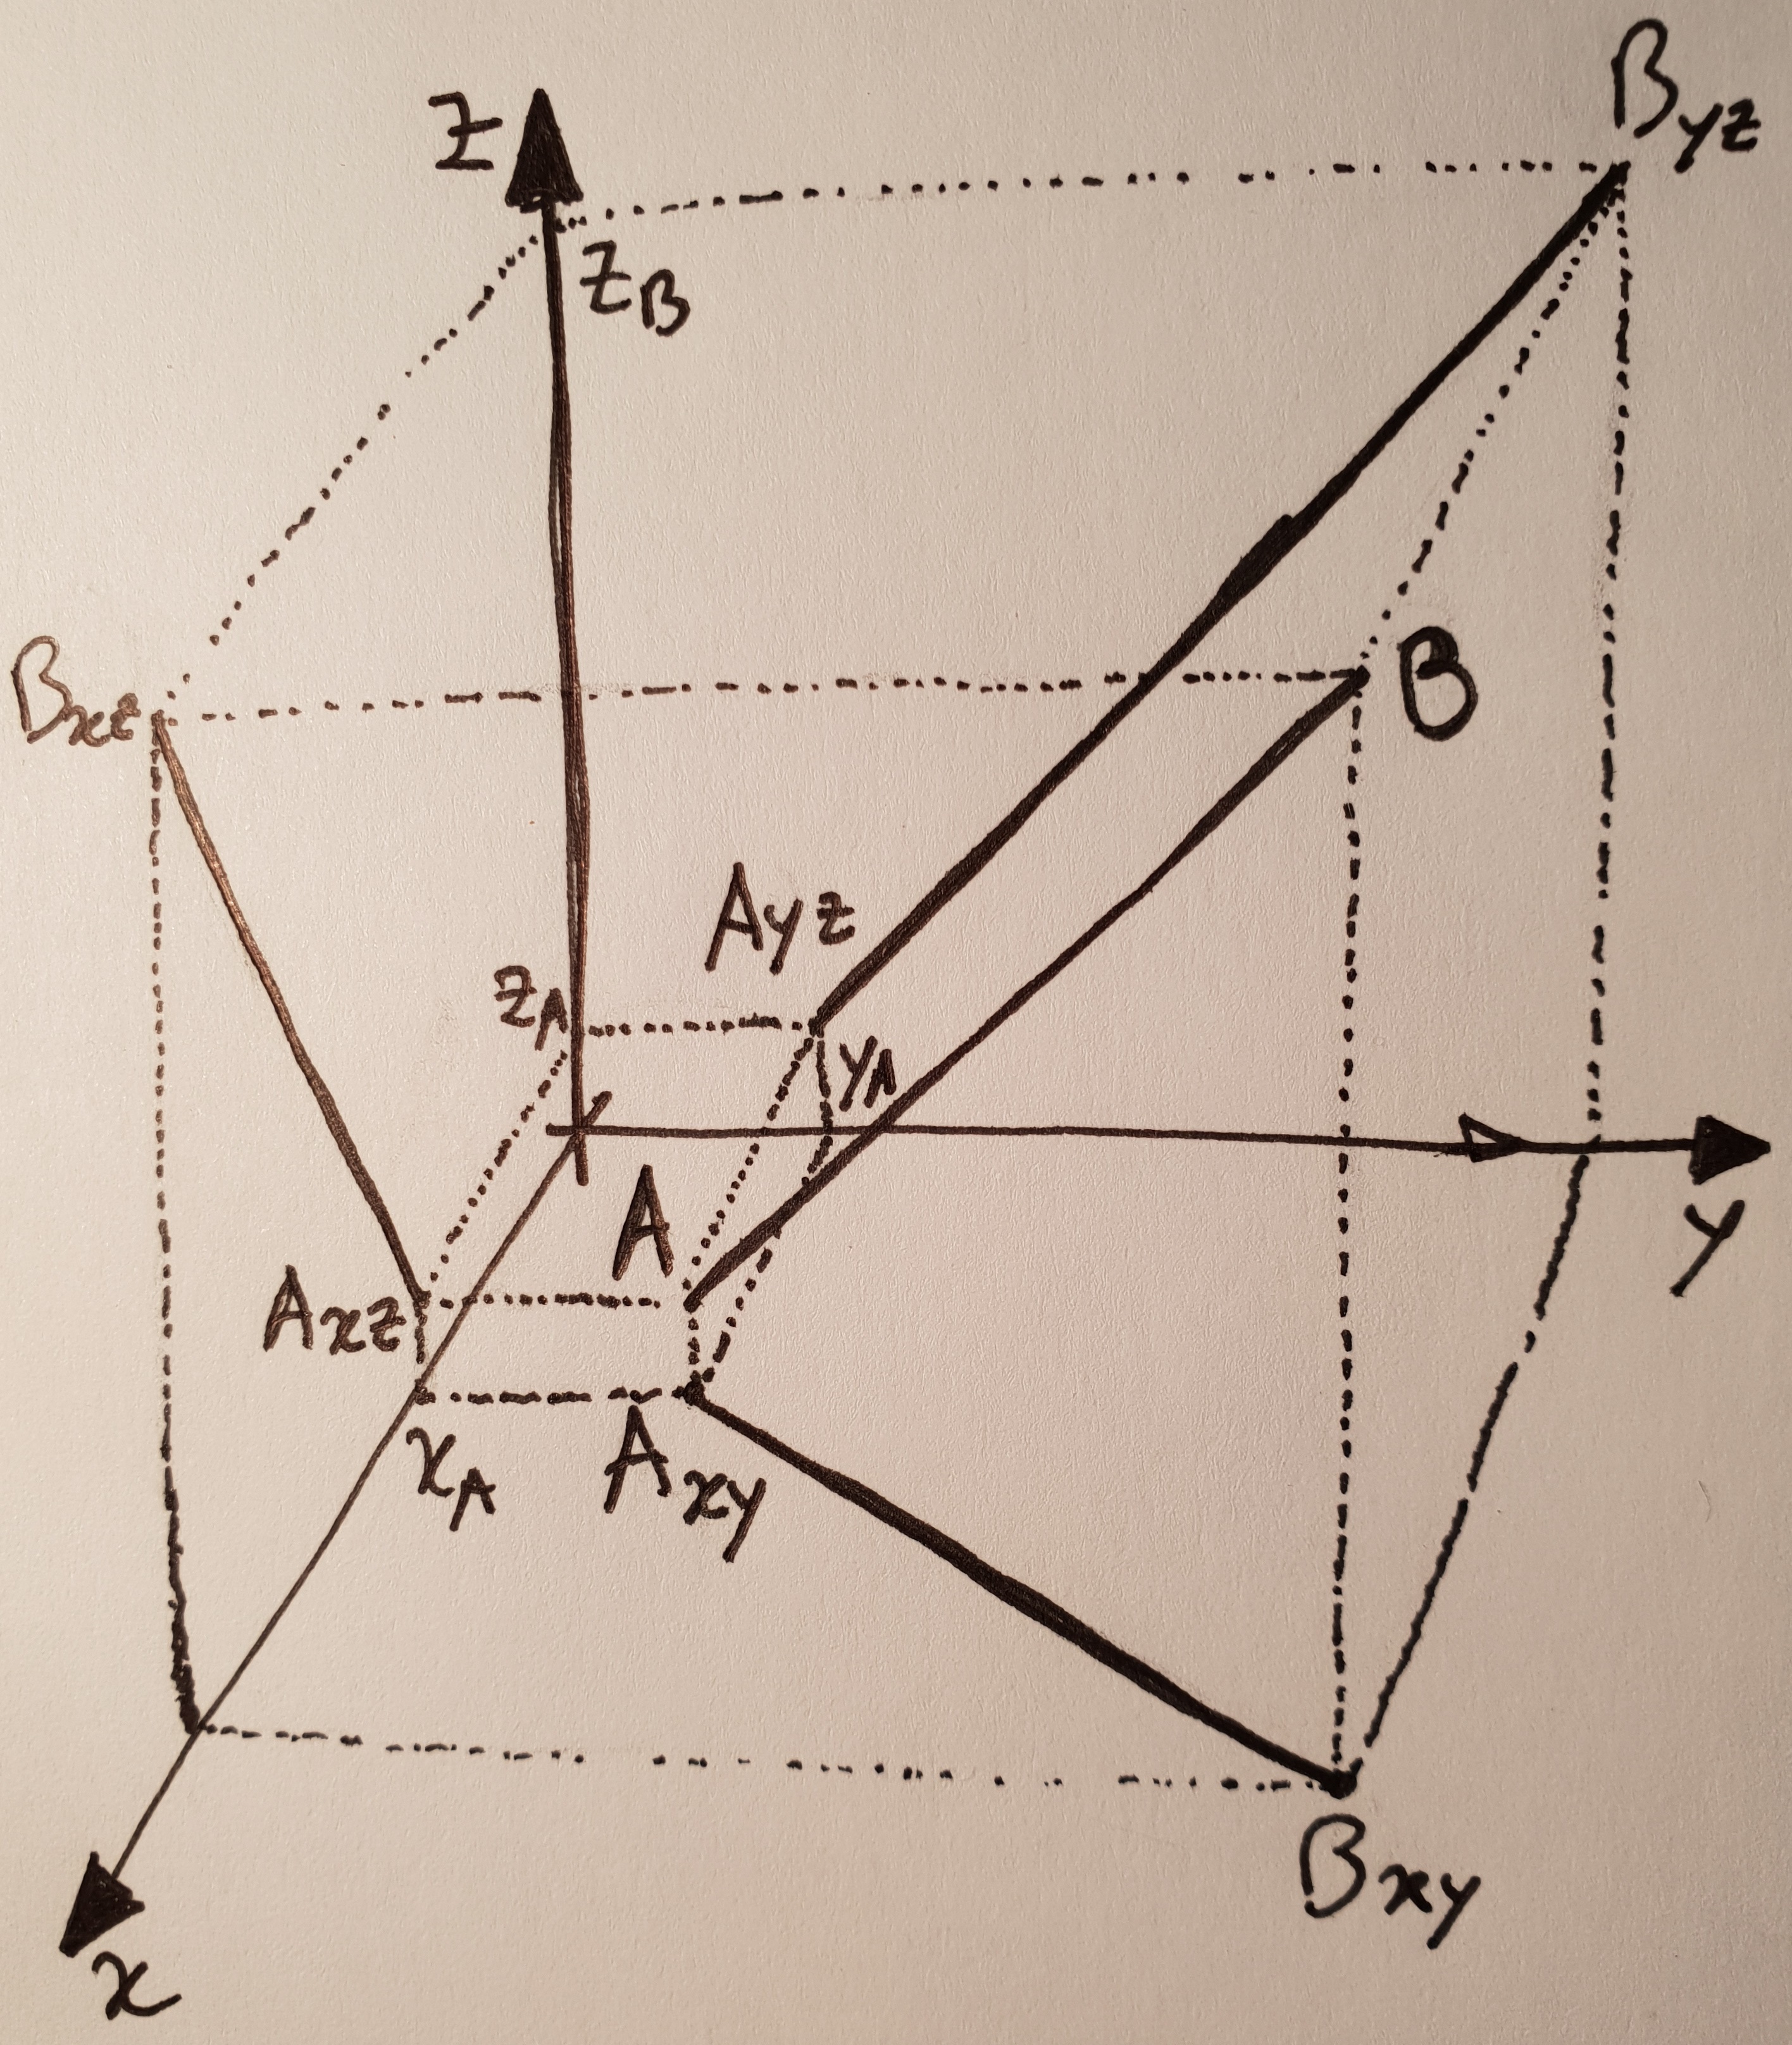 Byz
z
zB
Bxz
B
Ayz
zA
yA
A
y
Axz
xA
Axy
Bxy
x